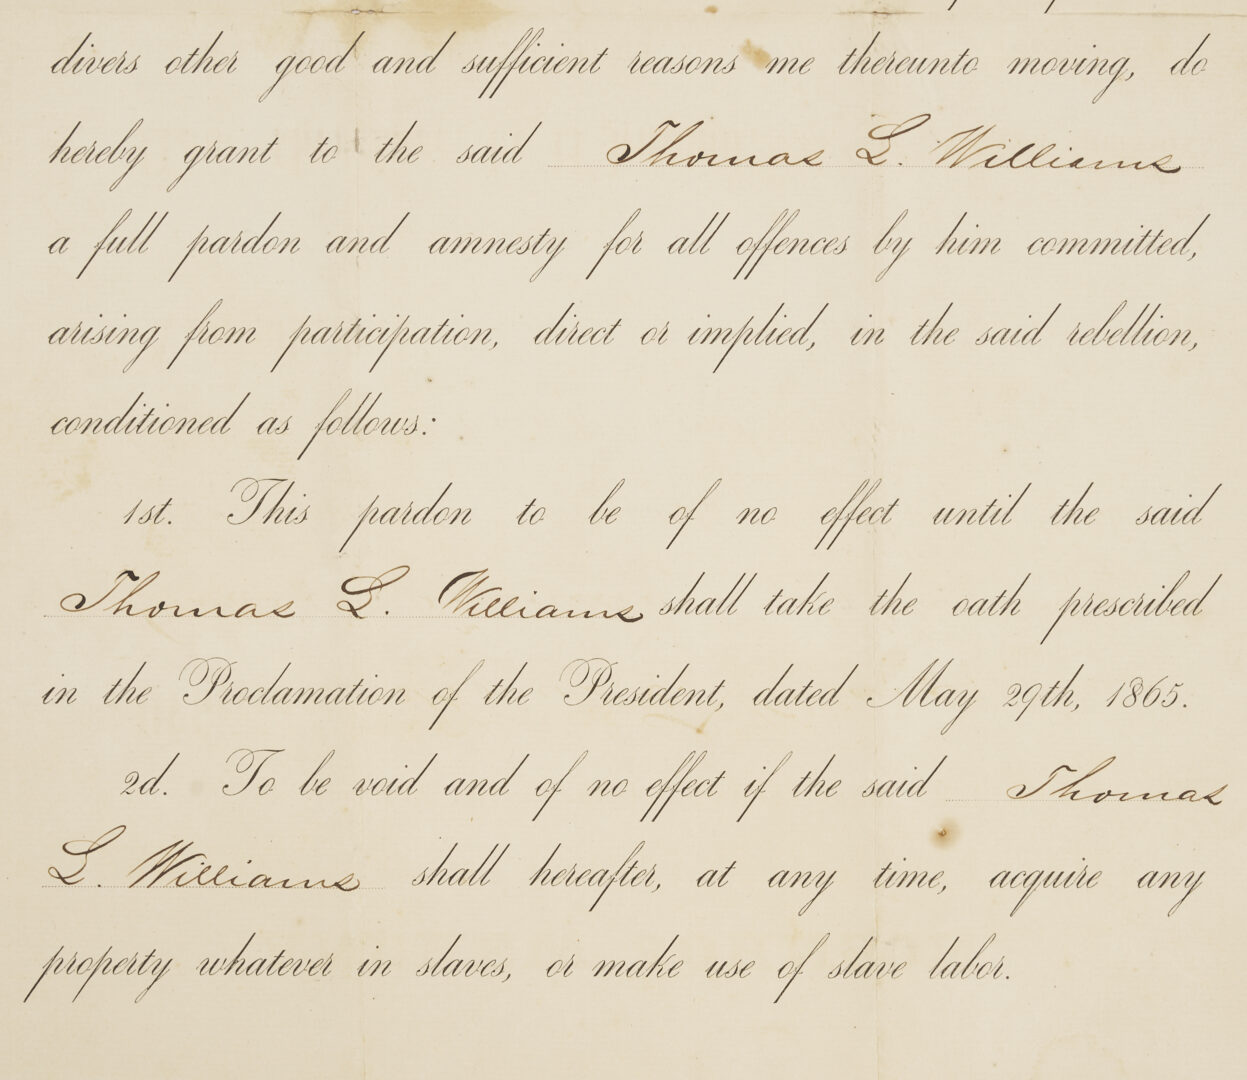 divers other good and sufficient reasons me thereunto moving, do
hereby grant to the said Thomas L. Williams
a full pardon and amnesty for all offences by him committed,
arising from participation, direct or implied, in the said rebellion,
conditioned as follows:
1st. This pardon to be of no effect until the said
Thomas L. Williams shall take the oath prescribed
in the Proclamation of the President, dated May 29th, 1865.
2d. To be void and of no effect if the said Thomas
L. Williams shall hereafter, at any time, acquire any
property whatever in slaves, or make use of slave labor.